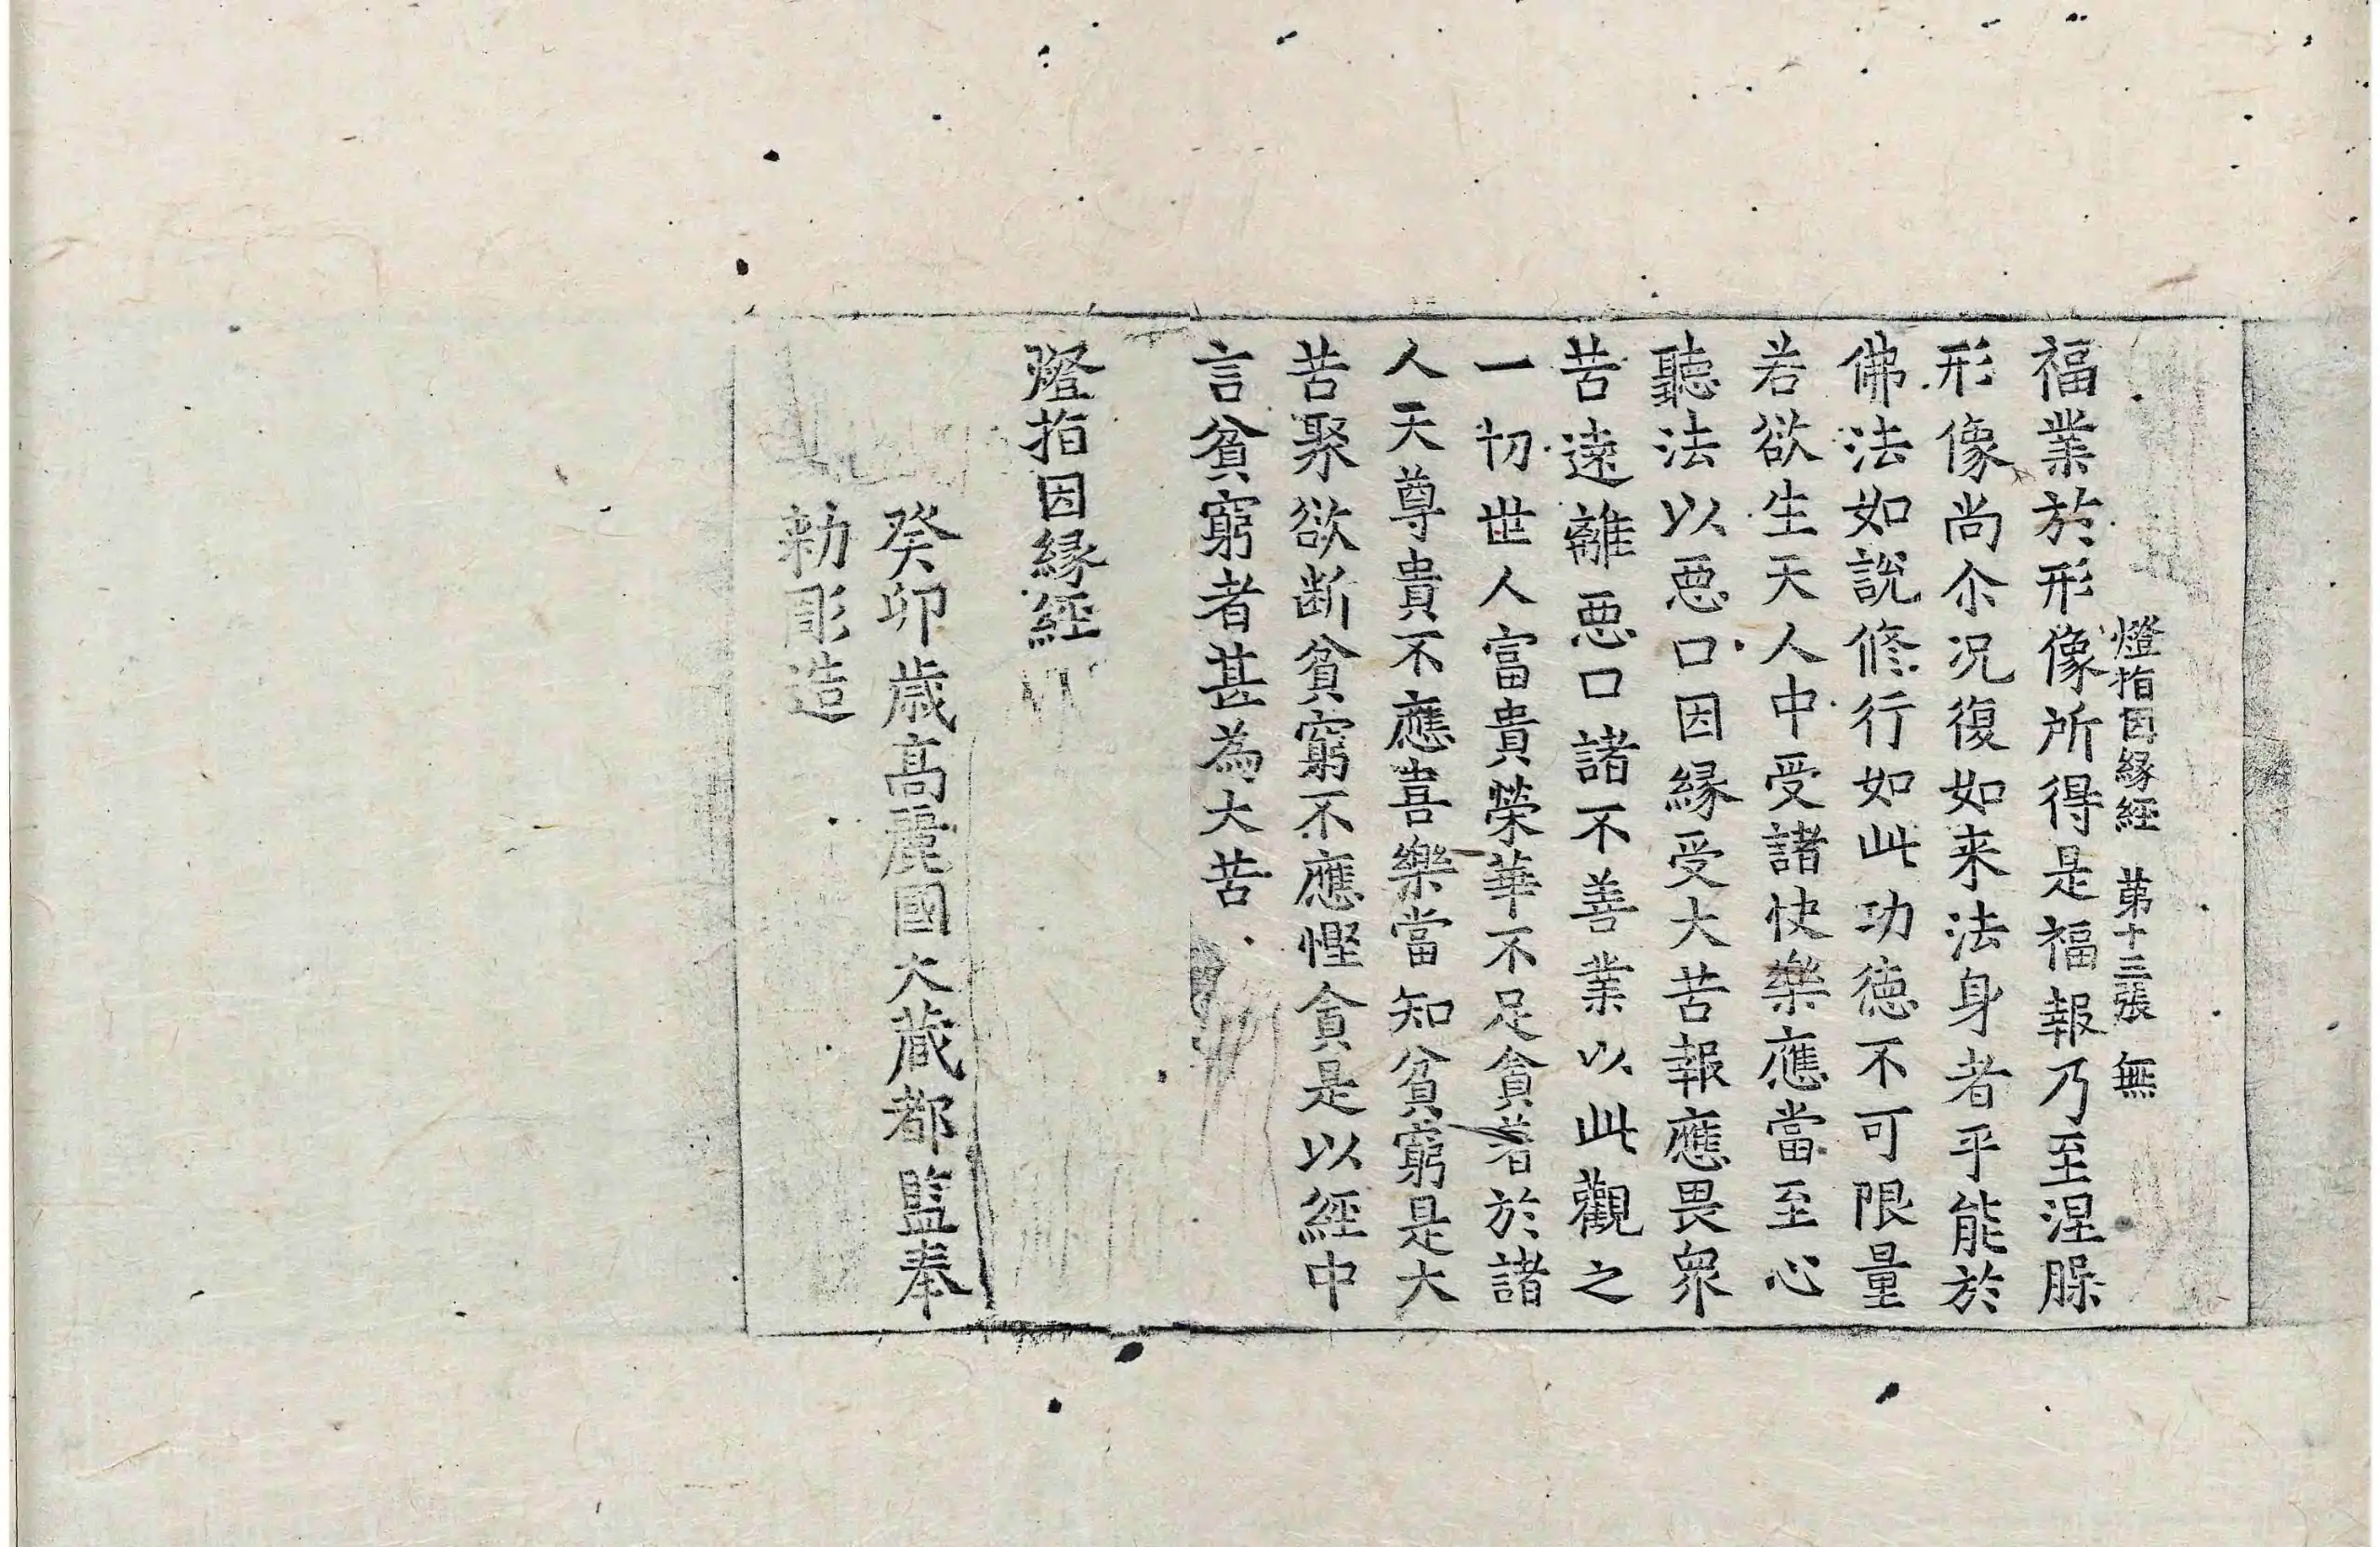 燈指因縁經 第十三張 無
福業於形像所得是福報乃至涅槃
形像尚尒况復如来法身者乎能於
佛法如說修行如此功徳不可限量
若欲生天人中受諸快樂應當至心
聽法以惡口因縁受大苦報應畏衆
苦遠離惡口諸不善業以此觀之
一切世人富貴榮華不足貪著於諸
人天尊貴不應喜樂當知貧窮是大
苦聚欲断貧窮不應慳貪是以經中
言貧窮者甚為大苦
燈指因縁經
癸卯歳高麗國大藏都監奉
勑彫造